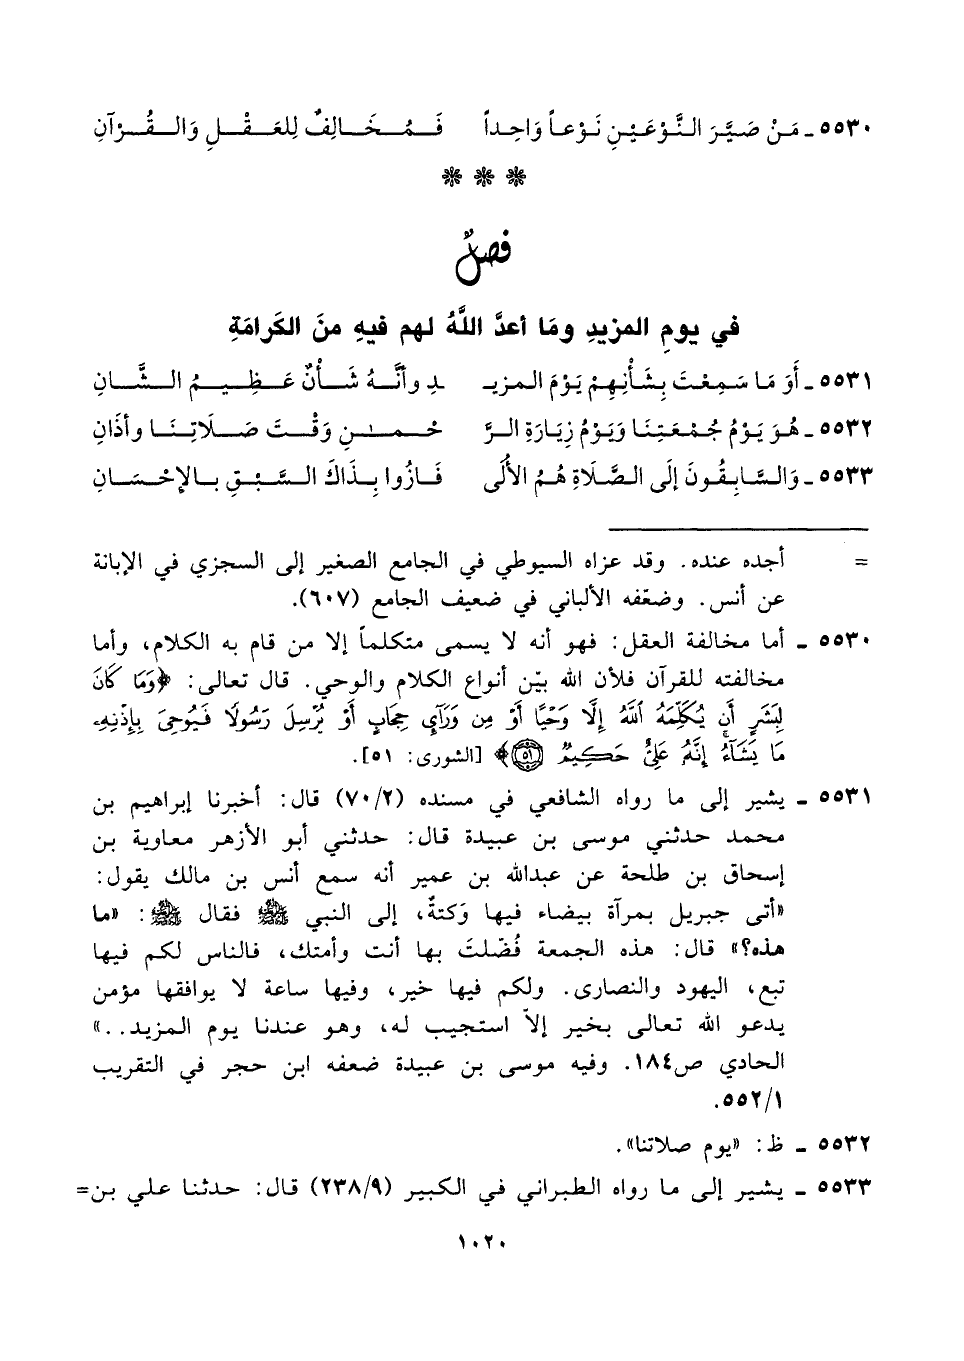 ٥٥٣٠ ـ مَـنْ صَـيَّـرَ الـنَّـوْعَـيْـنِ نَـوْعـاً وَاحِـداً فَـمُـخَـالِفٌ لِلعَـقْـلِ وَالـقُـرْآنِ
❋ ❋ ❋
فصلٌ
في يومِ المزيدِ ومَا أعدَّ اللَّهُ لهم فيهِ منَ الكَرامَةِ
٥٥٣١ ـ أَوَ مَا سَمِعْتَ بِشَأْنِهِمْ يَوْمَ المزيـ ـدِ وأنَّـهُ شَـأْنٌ عَـظِـيـمُ الـشَّـانِ
٥٥٣٢ ـ هُوَ يَوْمُ جُمْعَتِنَا وَيَوْمُ زِيَارَةِ الـرَّ حْـمـٰنِ وَقْـتَ صَـلَاتِـنَـا وأذَانِ
٥٥٣٣ ـ وَالسَّابِقُونَ إلَى الصَّلَاةِ هُمُ الأُلَى فَـازُوا بِـذَاكَ السَّـبْـقِ بـالإحْـسَـانِ
= أجده عنده. وقد عزاه السيوطي في الجامع الصغير إلى السجزي في الإبانة
عن أنس. وضعّفه الألباني في ضعيف الجامع (٦٠٧).
٥٥٣٠ ـ أما مخالفة العقل: فهو أنه لا يسمى متكلماً إلا من قام به الكلام، وأما
مخالفته للقرآن فلأن الله بيّن أنواع الكلام والوحي. قال تعالى: ﴿وَمَا كَانَ
لِبَشَرٍ أَن يُكَلِّمَهُ ٱللَّهُ إِلَّا وَحْيًا أَوْ مِن وَرَآىِٕ حِجَابٍ أَوْ يُرْسِلَ رَسُولًا فَيُوحِىَ بِإِذْنِهِۦ
مَا يَشَآءُۚ إِنَّهُۥ عَلِىٌّ حَكِيمٌ ۝٥١﴾ [الشورى: ٥١].
٥٥٣١ ـ يشير إلى ما رواه الشافعي في مسنده (٧٠/٢) قال: أخبرنا إبراهيم بن
محمد حدثني موسى بن عبيدة قال: حدثني أبو الأزهر معاوية بن
إسحاق بن طلحة عن عبدالله بن عمير أنه سمع أنس بن مالك يقول:
«أتى جبريل بمرآة بيضاء فيها وَكتةٌ، إلى النبي ﷺ فقال ﷺ: «ما
هذه؟» قال: هذه الجمعة فُضّلتَ بها أنت وأمتك، فالناس لكم فيها
تبع، اليهود والنصارى. ولكم فيها خير، وفيها ساعة لا يوافقها مؤمن
يدعو الله تعالى بخير إلاّ استجيب له، وهو عندنا يوم المزيد..»
الحادي ص١٨٤. وفيه موسى بن عبيدة ضعفه ابن حجر في التقريب
٥٥٢/١.
٥٥٣٢ ـ ظ: «يوم صلاتنا».
٥٥٣٣ ـ يشير إلى ما رواه الطبراني في الكبير (٢٣٨/٩) قال: حدثنا علي بن=
١٠٢٠